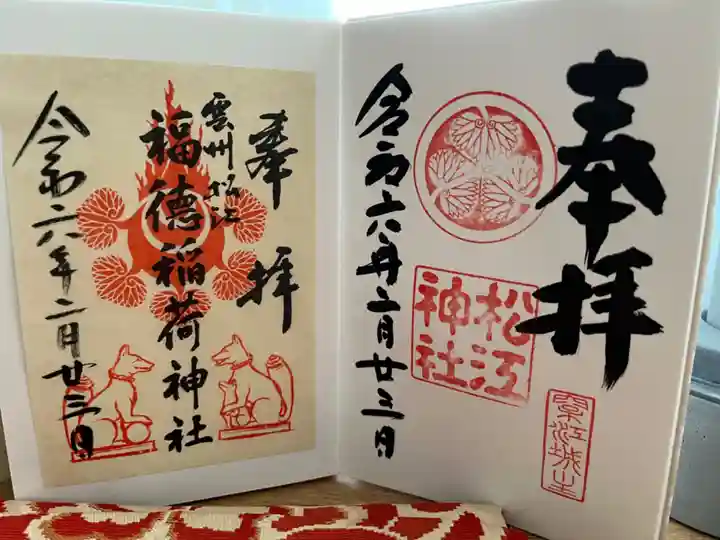 奉拝
松江
神社
令和六年二月廿三日
奉拝
雲州松江
福徳稲荷神社
令和六年二月廿三日